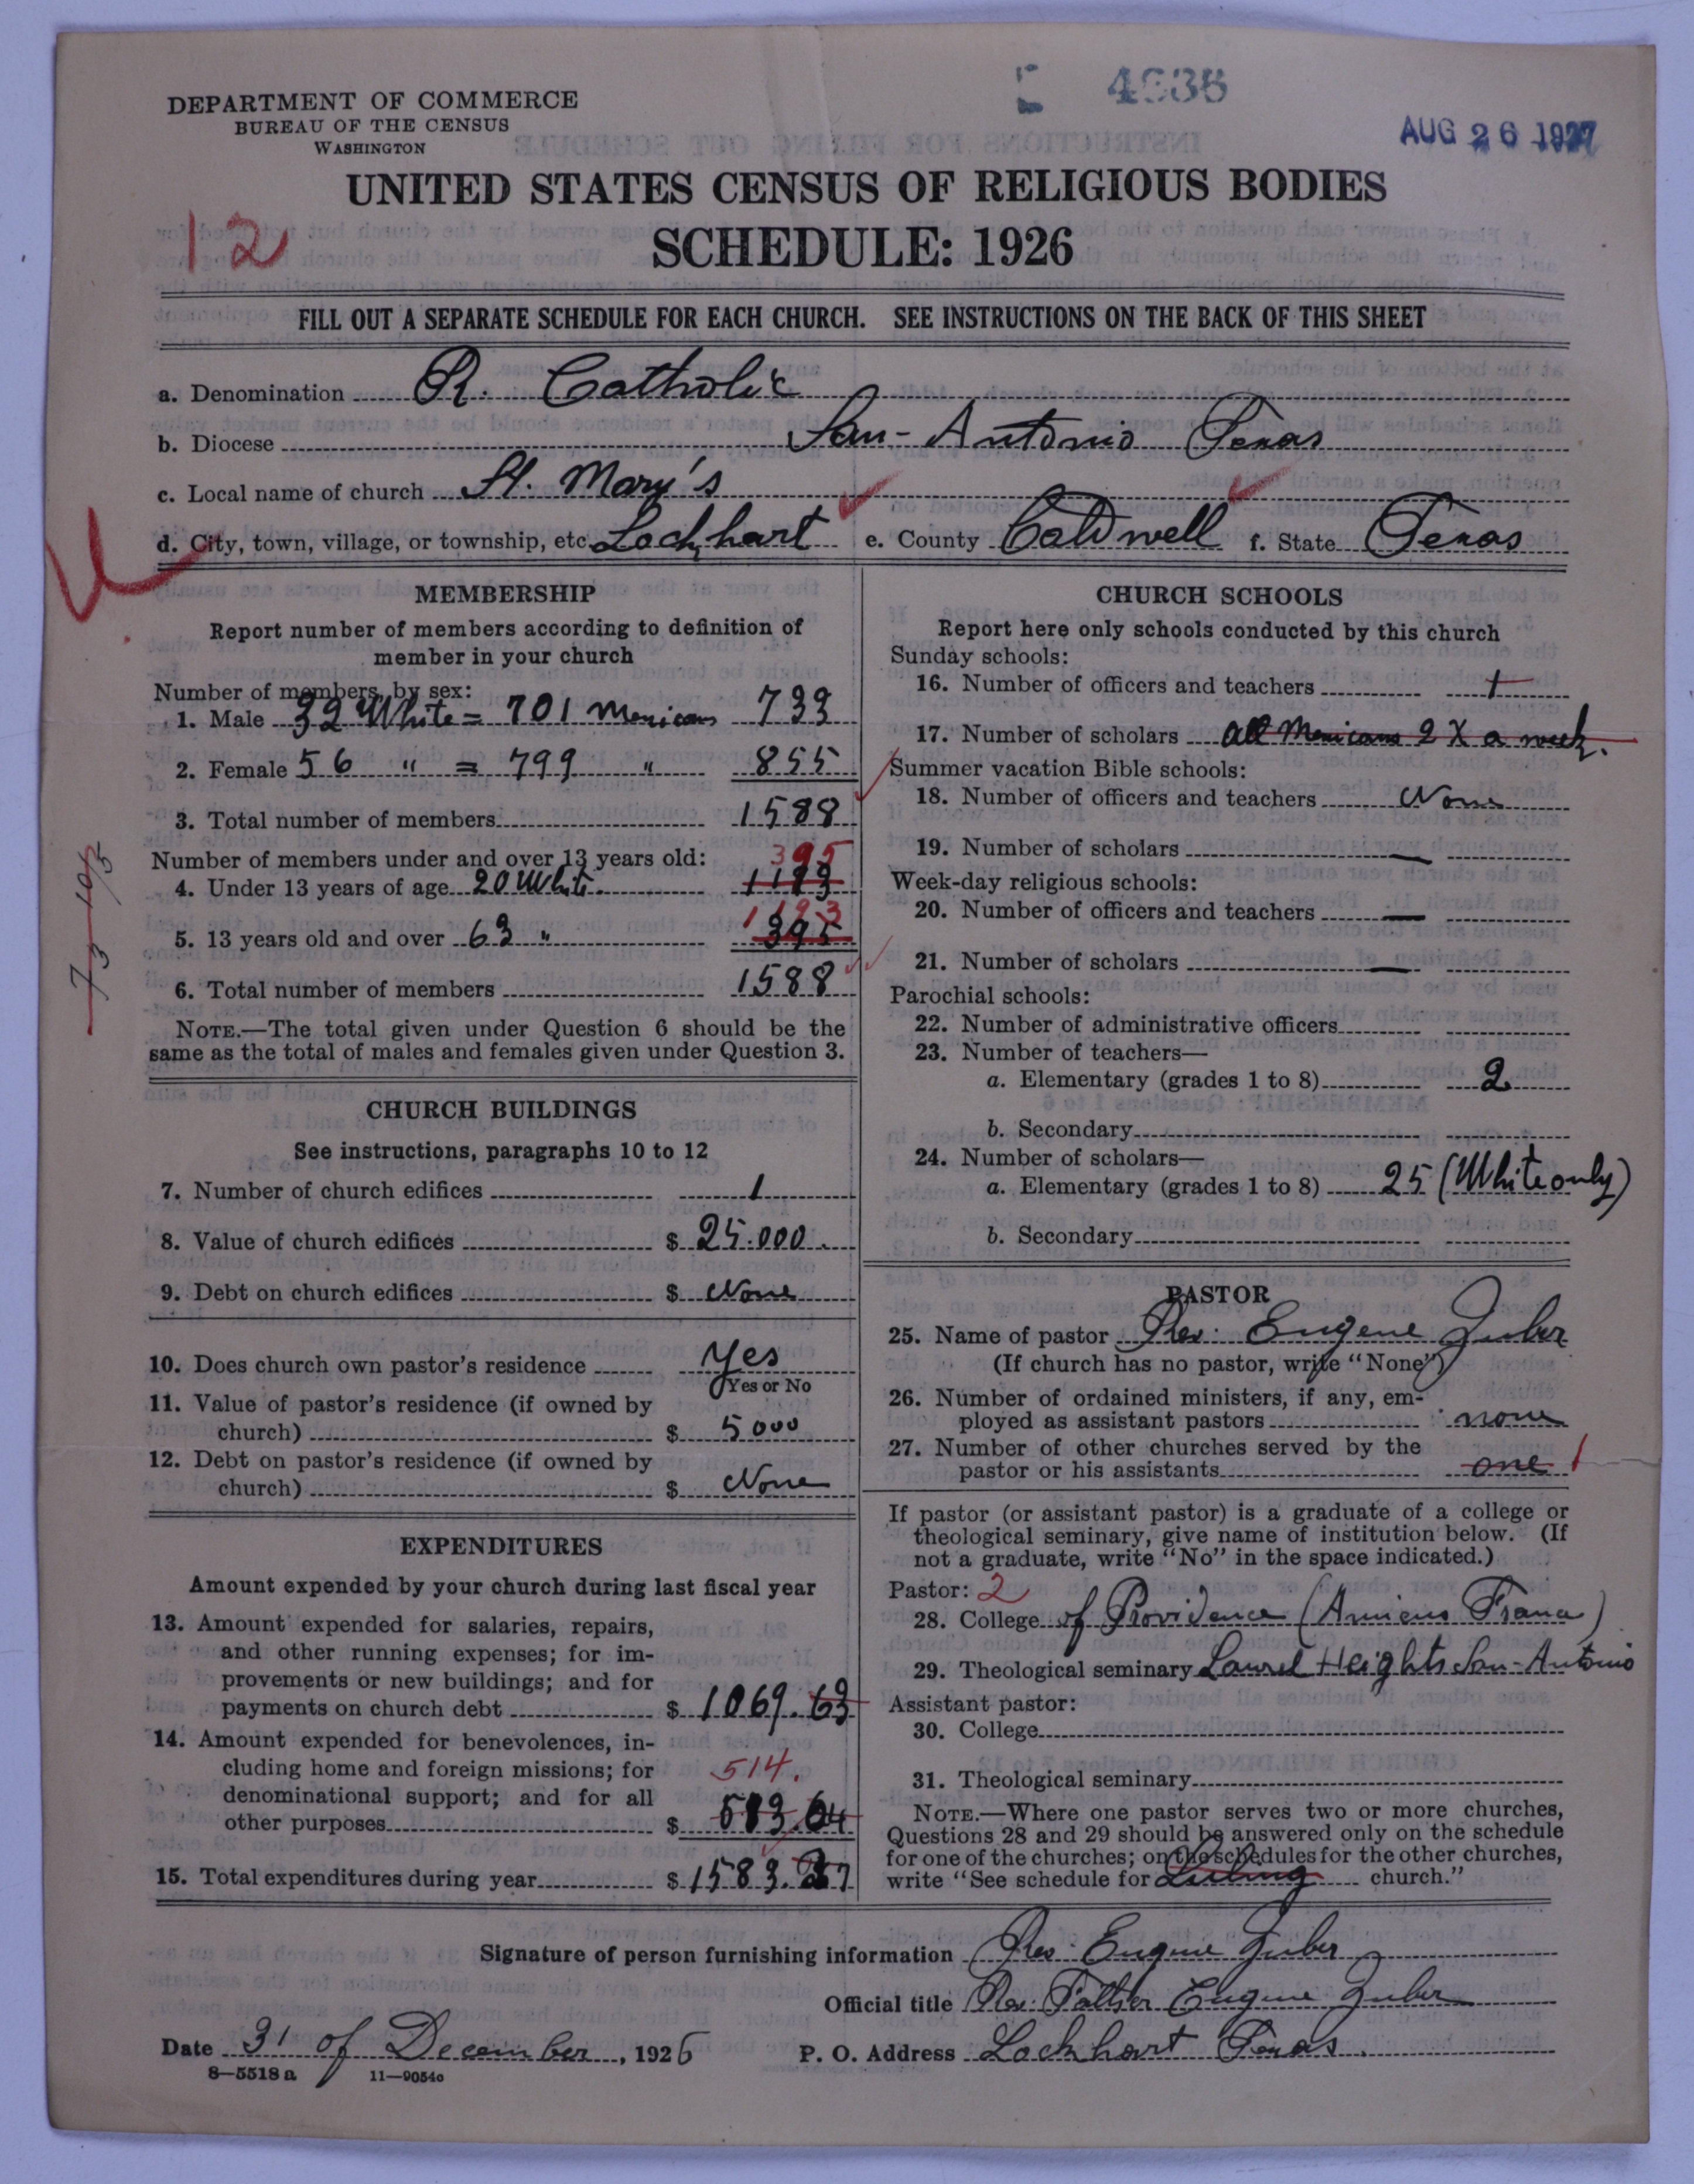 DEPARTMENT OF COMMERCE
BUREAU OF THE CENSUS
WASHINGTON
AUG 26 1927
UNITED STATES CENSUS OF RELIGIOUS BODIES
12
SCHEDULE: 1926
FILL OUT A SEPARATE SCHEDULE FOR EACH CHURCH. SEE INSTRUCTIONS ON THE BACK OF THIS SHEET
a. Denomination R. Catholic
b. Diocese San-Antonio Texas
c. Local name of church St. Mary's
d. City, town, village, or township, etc. Lockhart e. County Caldwell f. State Texas
MEMBERSHIP
Report number of members according to definition of
member in your church
Number of members, by sex:
1. Male 32 White = 701 Mexicans 733
2. Female 56 " = 799 " 855
3. Total number of members 1588
Number of members under and over 13 years old:
395
4. Under 13 years of age 20 White 1193
1193
5. 13 years old and over 63 " 395
6. Total number of members 1588
NOTE.—The total given under Question 6 should be the
same as the total of males and females given under Question 3.
CHURCH BUILDINGS
See instructions, paragraphs 10 to 12
7. Number of church edifices 1
8. Value of church edifices $ 25.000
9. Debt on church edifices $ None
10. Does church own pastor's residence Yes
Yes or No
11. Value of pastor's residence (if owned by
church) $ 5000
12. Debt on pastor's residence (if owned by
church) $ None
EXPENDITURES
Amount expended by your church during last fiscal year
13. Amount expended for salaries, repairs,
and other running expenses; for im-
provements or new buildings; and for
payments on church debt $ 1069.63
14. Amount expended for benevolences, in-
cluding home and foreign missions; for 514.
denominational support; and for all
other purposes $ 513.64
15. Total expenditures during year $ 1583.27
CHURCH SCHOOLS
Report here only schools conducted by this church
Sunday schools:
16. Number of officers and teachers 1
17. Number of scholars all Mexicans 2 X a week.
Summer vacation Bible schools:
18. Number of officers and teachers None
19. Number of scholars —
Week-day religious schools:
20. Number of officers and teachers —
21. Number of scholars —
Parochial schools:
22. Number of administrative officers
23. Number of teachers—
a. Elementary (grades 1 to 8) 2
b. Secondary
24. Number of scholars—
a. Elementary (grades 1 to 8) 25 (White only)
b. Secondary
PASTOR
25. Name of pastor Rev. Eugene Zuber
(If church has no pastor, write "None")
26. Number of ordained ministers, if any, em-
ployed as assistant pastors none
27. Number of other churches served by the
pastor or his assistants one 1
If pastor (or assistant pastor) is a graduate of a college or
theological seminary, give name of institution below. (If
not a graduate, write "No" in the space indicated.)
Pastor: 2
28. College of Providence (Amiens France)
29. Theological seminary Laurel Heights San-Antonio
Assistant pastor:
30. College
31. Theological seminary
NOTE.—Where one pastor serves two or more churches,
Questions 28 and 29 should be answered only on the schedule
for one of the churches; on the schedules for the other churches,
write "See schedule for Luling church."
Signature of person furnishing information Rev. Eugene Zuber
Official title Rev. Father Eugene Zuber
Date 31 of December, 1926 P. O. Address Lockhart Texas.
8—5518a 11—9054c